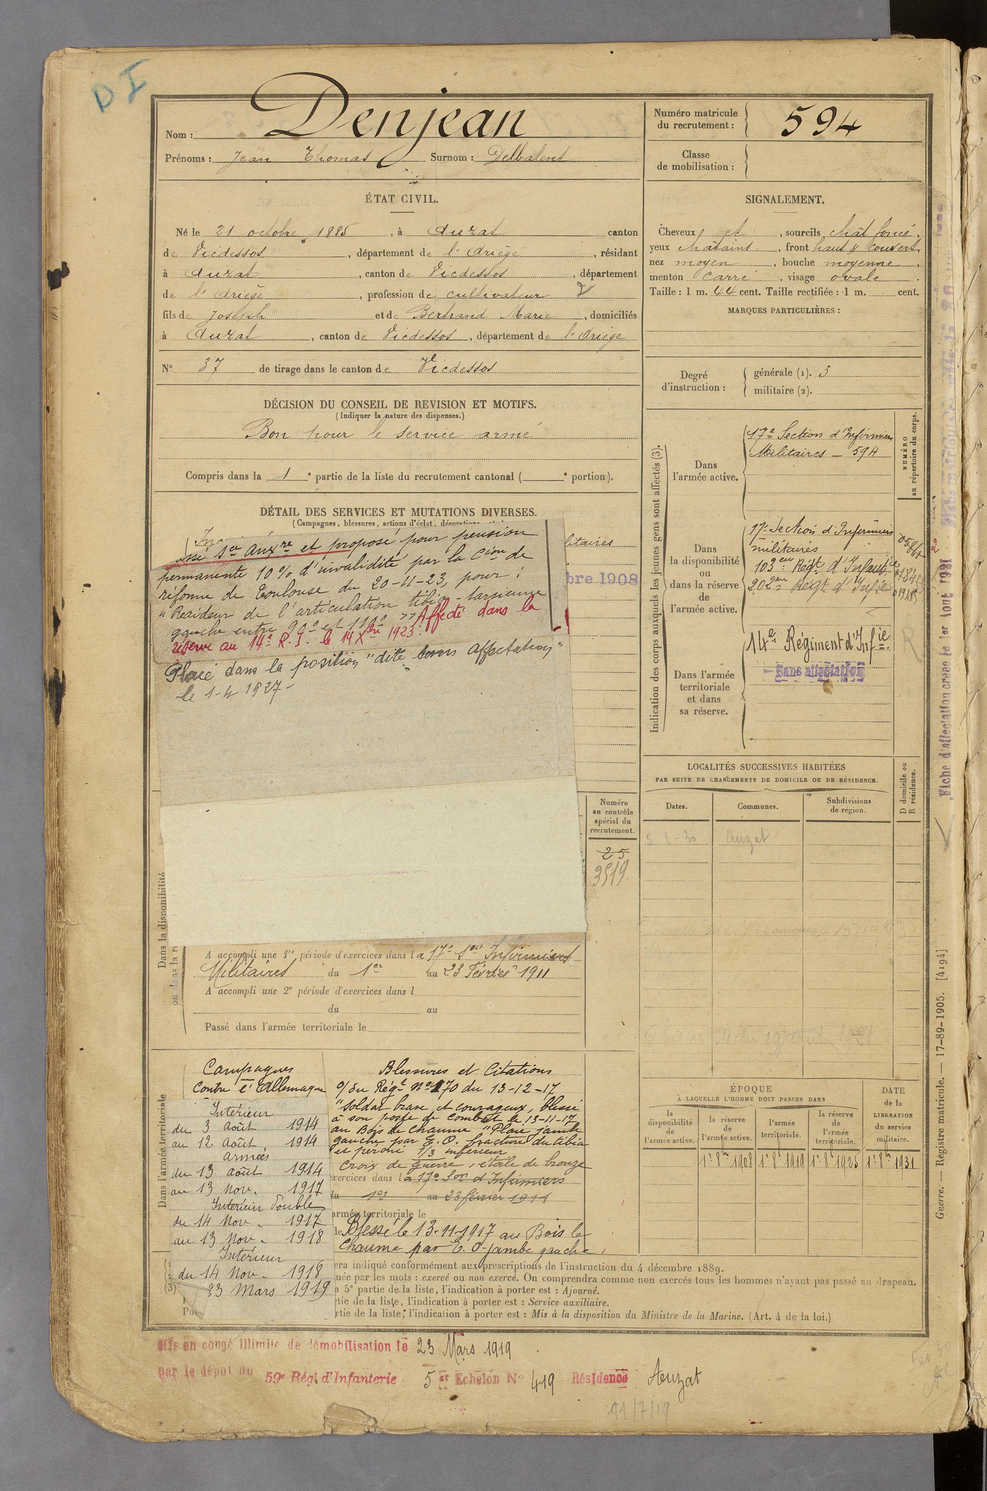 D I
Nom : Denjean
Prénoms : Jean Thomas Surnom : Delbalent
Numéro matricule du recrutement : 594
Classe de mobilisation :
ÉTAT CIVIL.
Né le 21 octobre 1885, à Auzat canton
de Vicdessos, département de l'Ariège, résidant
à Auzat, canton de Vicdessos, département
de l'Ariège, profession de cultivateur
fils de Joseph et de Bertrand Marie, domiciliés
à Auzat, canton de Vicdessos, département de l'Ariège
N° 37 de tirage dans le canton de Vicdessos
SIGNALEMENT.
Cheveux et, sourcils chât foncé.
yeux chatains, front haut & couvert
nez moyen, bouche moyenne.
menton carré, visage ovale
Taille : 1 m. 44 cent. Taille rectifiée : 1 m. cent.
MARQUES PARTICULIÈRES :
Degré d'instruction : générale (1). 3
militaire (2).
DÉCISION DU CONSEIL DE REVISION ET MOTIFS.
(Indiquer la nature des dispenses.)
Bon pour le service armé
Compris dans la 1e partie de la liste du recrutement cantonal ( e portion).
DÉTAIL DES SERVICES ET MUTATIONS DIVERSES.
(Campagnes, blessures, actions d'éclat, décorations
litaires
bre 1908
mé Sce Auxre et proposé pour pension
permanente 10% d'invalidité par la Cion de
réforme de Toulouse du 20-11-23, pour :
"Raideur de l'articulation tibio-tarsienne
gauche entre 90° et 110° >> Affecté dans la
réserve au 14e R.I. le 14 Xbre 1923.
Placé dans la position "dite sans affectation"
le 1-4 1927-
Indication des corps auxquels les jeunes gens sont affectés (3).
NUMÉRO au répertoire du corps.
Dans l'armée active.
17e Section d'Infirmiers
Militaires - 594
Dans la disponibilité ou dans la réserve de l'armée active.
17e Section d'Infirmiers
militaires
103eme Régt d'Infanterie
202eme Régt d'Infie
Dans l'armée territoriale et dans sa réserve.
14e Régiment d'Infie.
Sans affectation
LOCALITÉS SUCCESSIVES HABITÉES
PAR SUITE DE CHANGEMENTS DE DOMICILE OU DE RÉSIDENCE.
D domicile ou R résidence.
Dates. Communes. Subdivisions de région.
Auzat
Numéro au contrôle spécial du recrutement.
25
3519
Dans la disponibilité
A accompli une 1re période d'exercices dans la 17e Son Infirmiers
Militaires du 1er au 23 Février 1911
A accompli une 2e période d'exercices dans l
du au
Passé dans l'armée territoriale le
Dans l'armée territoriale
Campagnes
Contre l'Allemagne
Intérieur
du 3 Août 1914
au 12 Août 1914
Armées
du 13 Août 1914
au 13 Nov. 1917
Intérieur double
du 14 Nov. 1917
au 13 Nov. 1918
Intérieur
du 14 Nov. 1918
23 Mars 1919
Blessures et Citations
O/ du Régt N° 270 du 13-12-17
"Soldat brave et courageux, blessé
à son poste de combat le 13-11-17
au Bois le Chaume "Plaie jambe
gauche par E.O. fracture du tibia
et péroné 1/3 inférieur
Croix de guerre, étoile de bronze
exercices dans la 17e Son d'Infirmiers
du 1er au 23 février 1911
armée territoriale le
Blessé le 13-11-1917 au Bois le
Chaume par E.O. jambe gauche,
ÉPOQUE
À LAQUELLE L'HOMME DOIT PASSER DANS
la disponibilité de l'armée active. la réserve de l'armée active. l'armée territoriale. la réserve de l'armée territoriale.
DATE de la LIBÉRATION du service militaire.
1er 8bre 1908 1er 8bre 1919 1er 8bre 1925 1er 8bre 1931
era indiqué conformément aux prescriptions de l'instruction du 4 décembre 1889.
uée par les mots : exercé ou non exercé. On comprendra comme non exercés tous les hommes n'ayant pas passé au drapeau.
a 5e partie de la liste, l'indication à porter est : Ajourné.
rtie de la liste, l'indication à porter est : Service auxiliaire.
rtie de la liste, l'indication à porter est : Mis à la disposition du Ministre de la Marine. (Art. 4 de la loi.)
Mis en congé illimité de démobilisation le 23 Mars 1919
par le dépot du 59e Rég. d'Infanterie 5e Echelon N° 419 Résidence Auzat
11/7/19
Guerre. — Registre matricule. — 17-89-1905. [4194]
Fiche d'affectation créée le 1er Août 1921